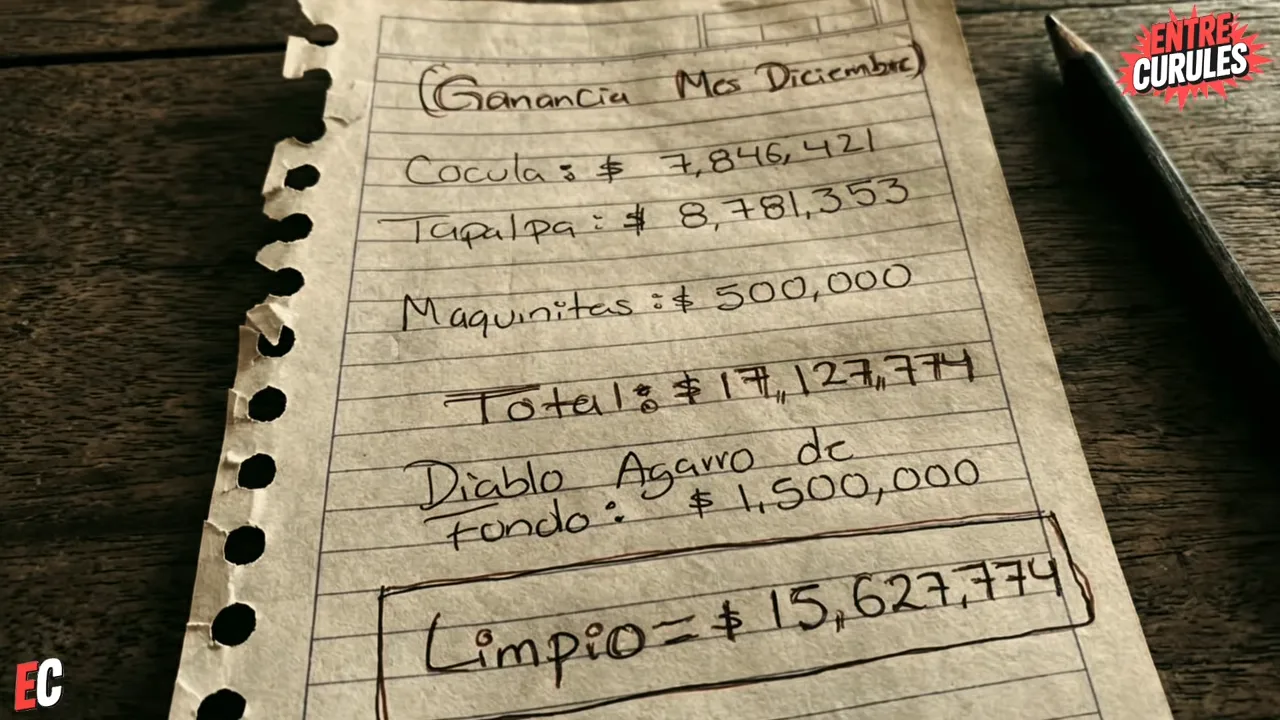 ENTRE
CURULES
(Ganancia Mes Diciembre)
Cocula: $ 7,846,421
Tapalpa: $ 8,781,353
Maquinitas: $ 500,000
Total: $ 17,,127,,774
Diablo Agarro de
fondo: $ 1,500,000
Limpio = $ 15,,627,774
EC